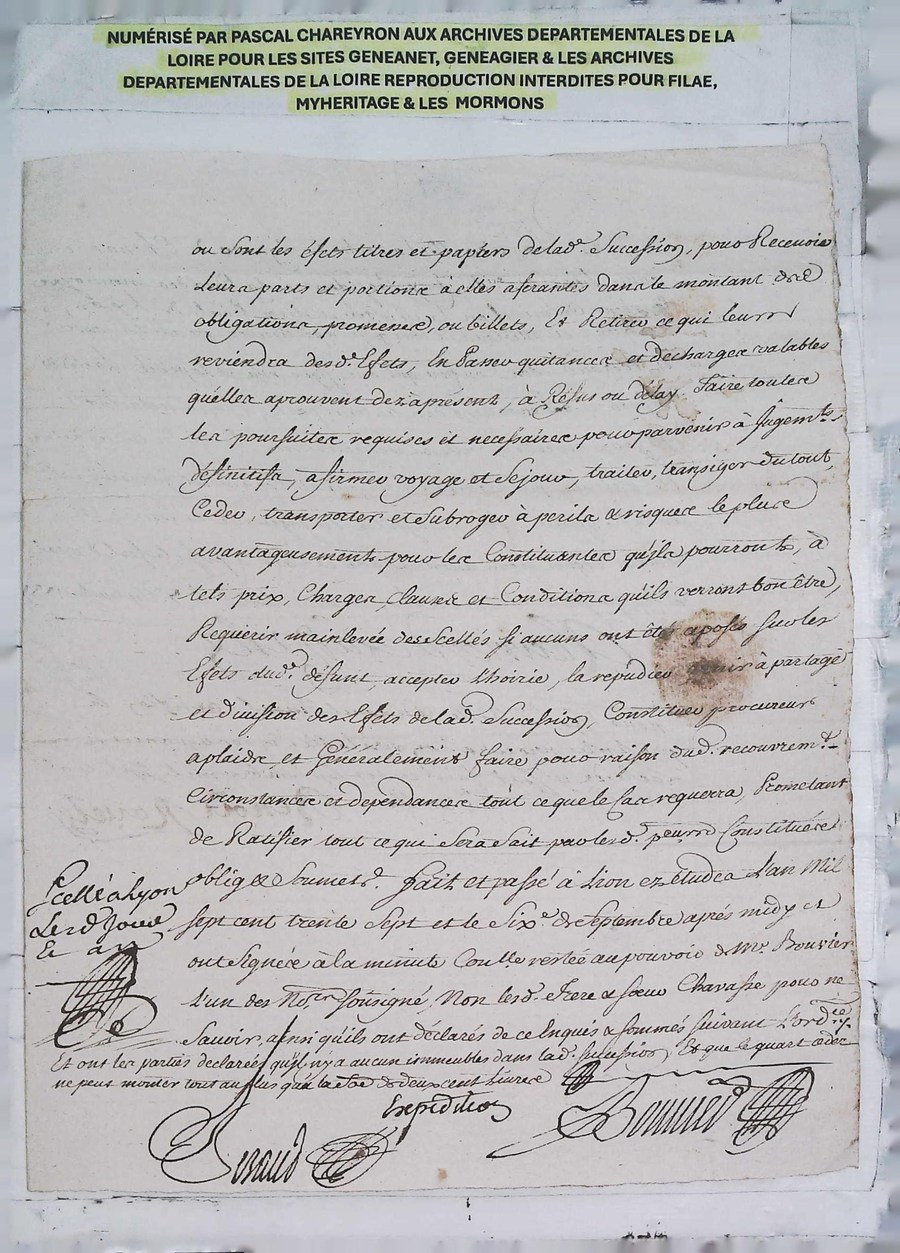 NUMÉRISÉ PAR PASCAL CHAREYRON AUX ARCHIVES DEPARTEMENTALES DE LA
LOIRE POUR LES SITES GENEANET, GENEAGIER & LES ARCHIVES
DEPARTEMENTALES DE LA LOIRE REPRODUCTION INTERDITES POUR FILAE,
MYHERITAGE & LES MORMONS
ou sont les éfets titres et papiers de lade. Succession, pour Recevoir
Leurs parts et portions à elles aferantes dans le montant des
obligations, promesses, ou billets, Et Retirer ce qui leurs
reviendra desd. Effets, En Passer quitances et decharges valables
quélles aprouvent dez aprésent, à Réfus ou délay Faire toutes
les poursuites requises et necessaires pour parvenir à Jugemts.
définitifs, afirmer voyage et Sejour, traiter, transiger du tout,
Ceder, transporter et Subroger à perils & risques le plus
avantageusement pour les Constituantes qu'ils pourront, à
tels prix, Charges, clauses et Conditions qu'ils verront bon être,
Requerir mainlevée des scellés si aucuns ont été aposés sur les
Effets dud. défunt, accepter l'hoirie, la repudier à partage
et division des Effets de lad. Succession, Constituer procureurs
aplaids, et Généralement faire pour raison dud. recouvremt.
Circonstances et dependances tout ce que le Cas requerra, Promettant
de Ratifier tout ce qui Sera fait par lesd. Constitués
oblig & Soumets. Fait et passé à Lion ez études L'an Mil
sept cent trente Sept et le Sixe. de Septembre aprés midy et
ont Signées à la minute Coulle. restée au pouvoir de Me. Bouvier
L'un des Nores. Soussigné, Non lesd. Frere & Soeur Chavasse pour ne
Savoir, ainsi qu'ils ont déclarés de ce Enquis & sommés suivant l'ordce.
Et ont les parties declarées qu'il n'y a aucun immeubles dans lad. succession, Et que le quart
ne peut monter tout au plus qu'a la Soe de deux cent Livres
Scellé à Lyon
Lesd. Jour
Et an
Expedition